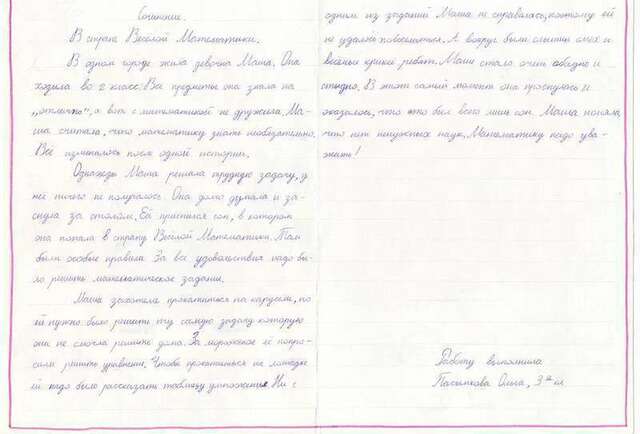 Сочинение.
В стране Веселой Математики.
В одном городе жила девочка Маша. Она
ходила во 2 класс. Все предметы она знала на
„отлично“, а вот с математикой не дружила. Ма-
ша считала, что математику знать необязательно.
Все изменилось после одной истории.
Однажды Маша решала трудную задачу, у
нее ничего не получалось. Она долго думала и за-
снула за столом. Ей приснился сон, в котором
она попала в страну Веселой Математики. Там
были особые правила. За все удовольствия надо бы-
ло решить математическое задание.
Маша захотела прокатиться на карусели, но
ей нужно было решить ту самую задачу которую
она не смогла решить дома. За мороженое её попро-
сили решить уравнения. Чтобы прокатиться на лошадке
ей надо было рассказать таблицу умножения. Ни с
одним из заданий Маша не справилась, поэтому ей
не удалось повеселиться. А вокруг были слышны смех и
веселые крики ребят. Маше стало очень обидно и
стыдно. В этот самый момент она проснулась и
оказалось, что это был всего лишь сон. Маша поняла,
что нет ненужных наук. Математику надо ува-
жать!
Работу выполнила
Пасынкова Ольга, 3 кл